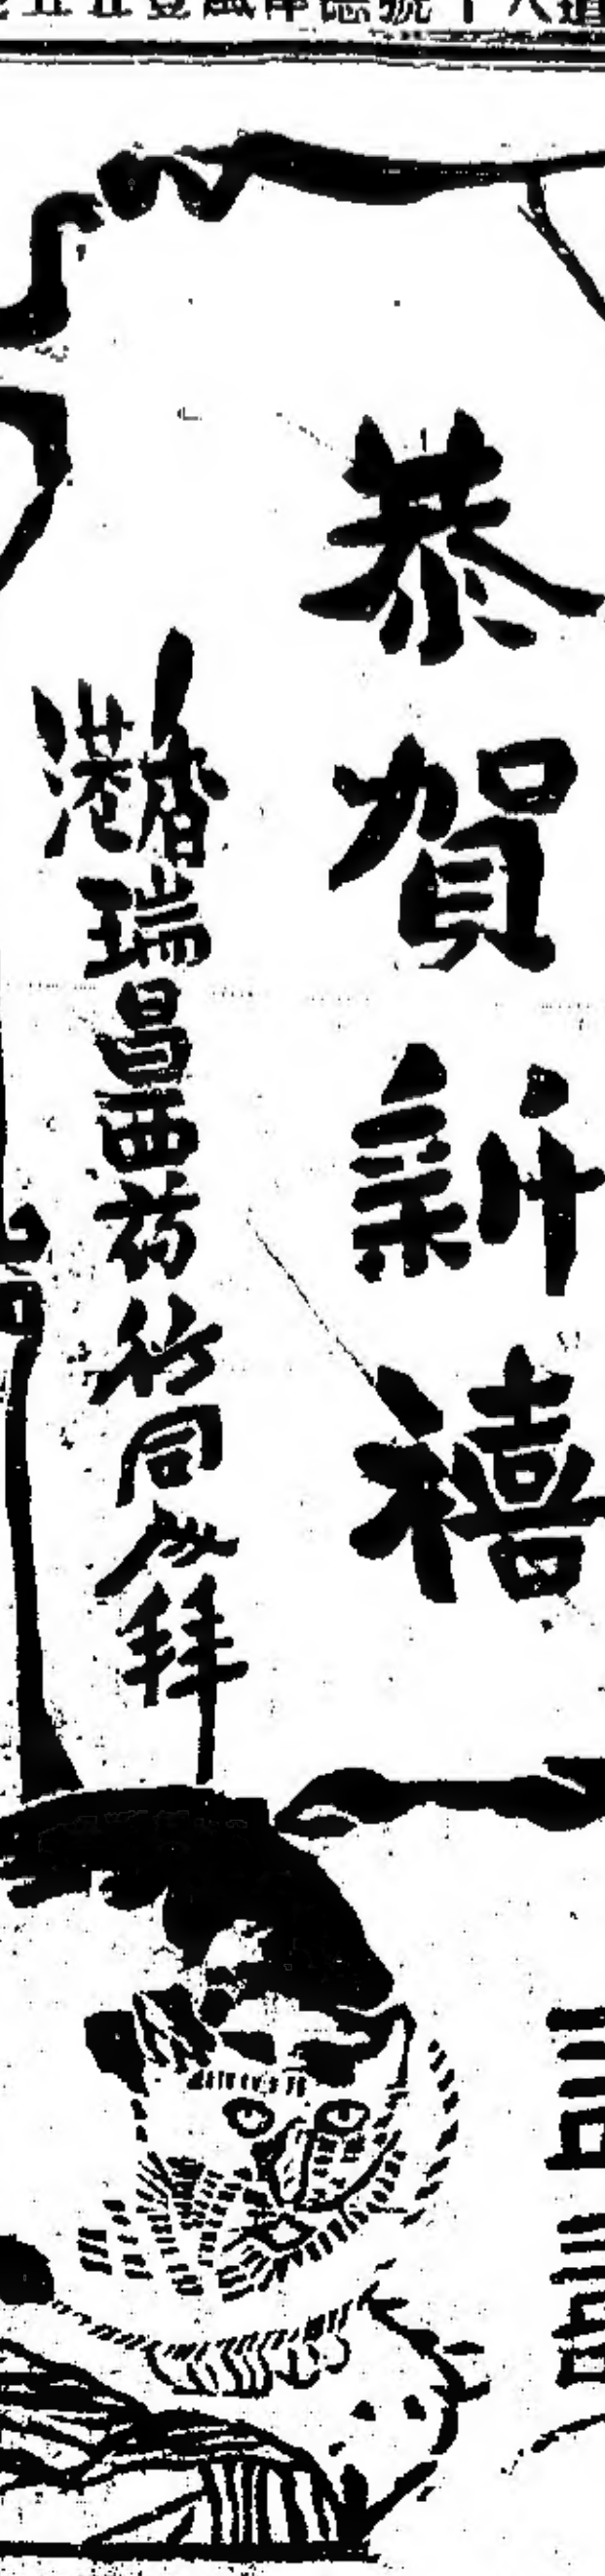 恭賀新禧
香港瑞昌西药行同人拜